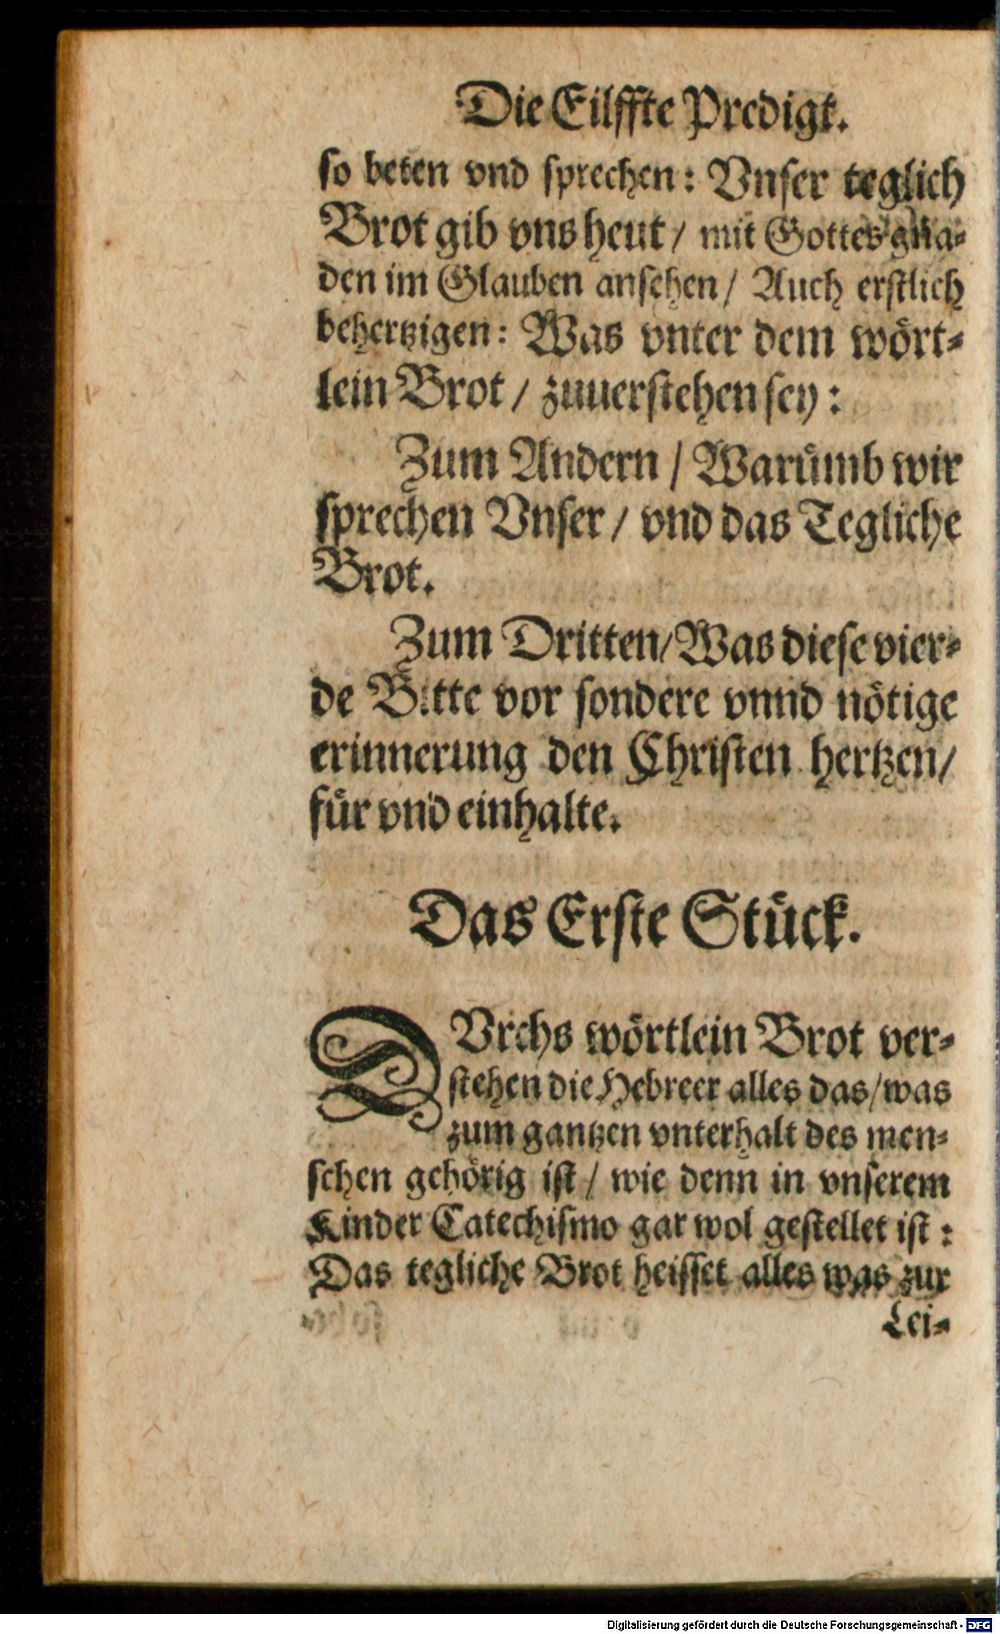 Die Eilffte Predigt.
so beten vnd sprechen: Vnser teglich
Brot gib vns heut / mit Gottes gna-
den im Glauben ansehen / Auch erstlich
behertzigen: Was vnter dem wört-
lein Brot / zuuerstehen sey:
Zum Andern / Warümb wir
sprechen Vnser / vnd das Tegliche
Brot.
Zum Dritten/ Was diese vier-
de Bitte vor sondere vnnd nötige
erinnerung den Christen hertzen/
für vnd einhalte.
Das Erste Stück.
DVrchs wörtlein Brot ver-
stehen die Hebreer alles das/ was
zum gantzen vnterhalt des men-
schen gehörig ist / wie denn in vnserem
Kinder Catechismo gar wol gestellet ist:
Das tegliche Brot heisset alles was zur
Lei-
Digitalisierung gefördert durch die Deutsche Forschungsgemeinschaft - DFG